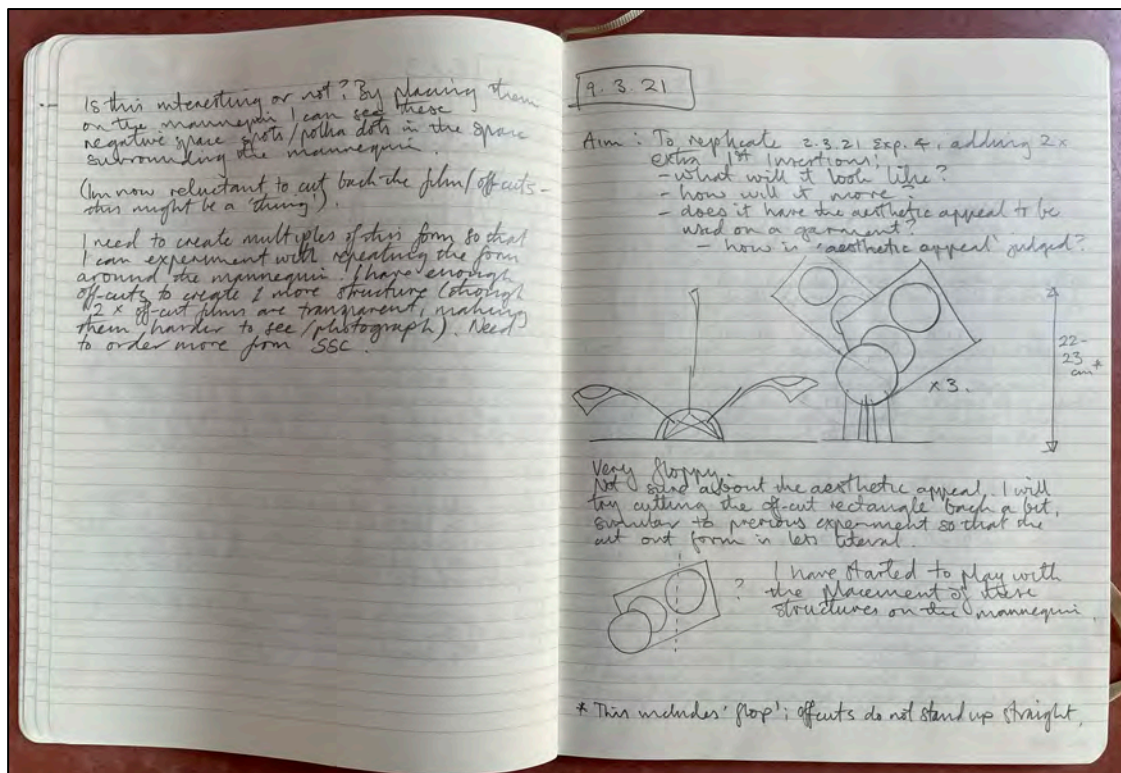 Is this interesting or not? By placing them
on the mannequin I can see these
negative space spots/polka dots in the space
surrounding the mannequin.
(Im now reluctant to cut back the film/off-cuts -
this might be a 'thing').
I need to create multiples of this form so that
I can experiment with repeating the form
around the mannequin. I have enough
off-cuts to create 1 more structure (though
2 x off-cut films are transparent, making
them harder to see/photograph). Need
to order more from SSC.
9.3.21
Aim: To replicate 2.3.21 Exp. 4, adding 2x
extra 1st insertions:
- what will it look like?
- how will it move?
- does it have the aesthetic appeal to be
used on a garment?
- how is 'aesthetic appeal' judged?
22-
23
cm*
x3.
Very floppy.
Not sure about the aesthetic appeal. I will
try cutting the off-cut rectangle back a bit,
similar to previous experiment so that the
cut out form is less literal.
? I have started to play with
the placement of these
structures on the mannequin.
* This includes 'flop'; offcuts do not stand up straight.